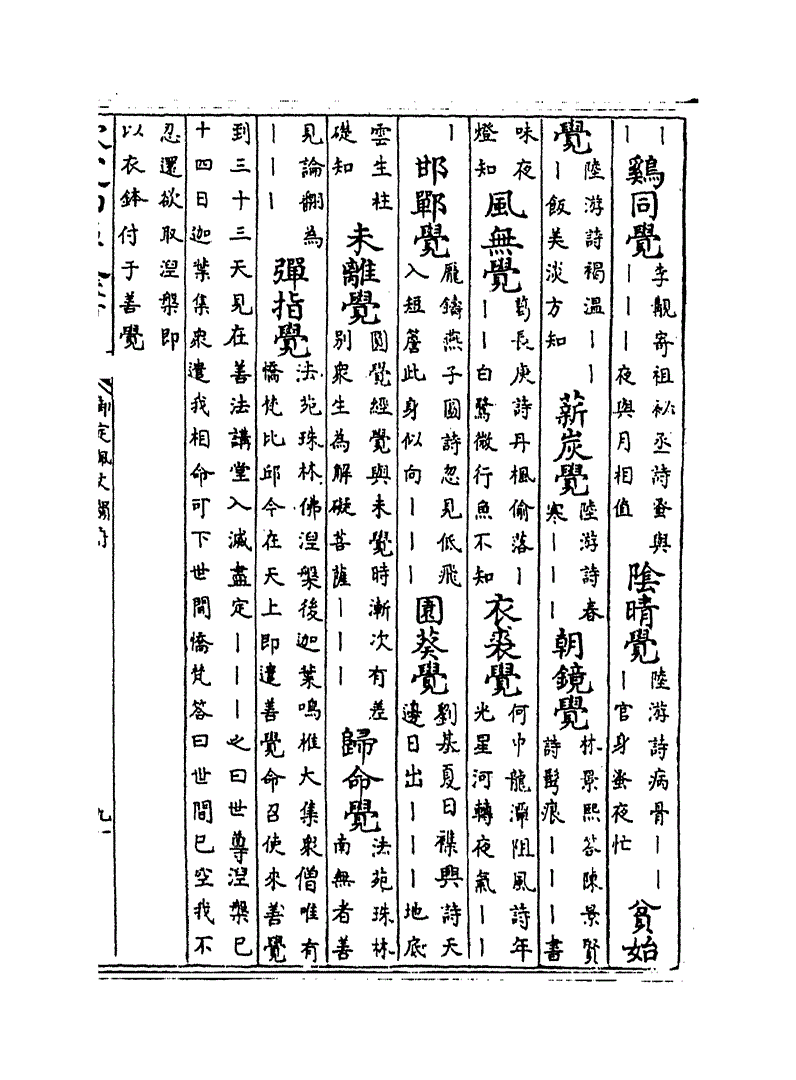 丨丨 鷄同覺 李覯寄祖祕丞詩蚤與丨丨丨夜與月相值 陰晴覺 陸游詩病骨丨丨丨官身蚤夜忙 貧始
覺 陸游詩褐溫丨丨丨飯美淡方知 薪炭覺 陸游詩春寒丨丨丨 朝鏡覺 林景熙答陳景賢詩鬂痕丨丨丨書
味夜燈知 風無覺 葛長庚詩丹楓偷落丨丨丨白鷺微行魚不知 衣裘覺 何中龍潭阻風詩年光星河轉夜氣丨丨
丨 邯鄲覺 龐鑄燕子圖詩忽見低飛入短簷此身似向丨丨丨 園葵覺 劉基夏日襍興詩天邊日出丨丨丨地底
雲生柱礎知 未離覺 圓覺經覺與未覺時漸次有差別衆生為解礙菩薩丨丨丨 歸命覺 法苑珠林南無者善
見論翻為丨丨丨 彈指覺 法苑珠林佛涅槃後迦葉鳴椎大集衆僧唯有憍梵比邱今在天上即遣善覺命召使來善覺
到三十三天見在善法講堂入滅盡定丨丨丨之曰世尊涅槃已十四日迦葉集衆遣我相命可下世間憍梵答曰世間已空我不
忍還欲取涅槃即以衣鉢付于善覺
御定佩文韻府